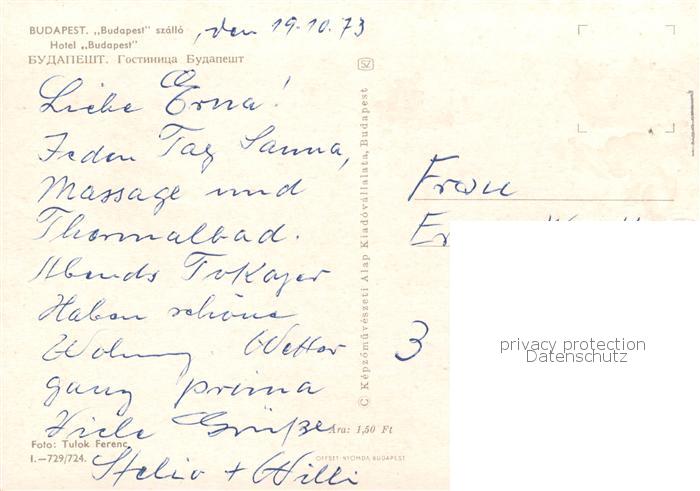 BUDAPEST. „Budapest" szálló
Hotel „Budapest"
БУДАПЕШТ. Гостиница Будапешт
, den 19.10.73
Liebe Erna!
Jeden Tag Sauna,
Massage und
Thermalbad.
Abends Tokajer
Haben schöne
Wohnung. Wetter
ganz prima
Viele Grüße
Stelio + Willi
Foto: Tulok Ferenc
I.—729/724.
Ára: 1,50 Ft
OFFSET-NYOMDA BUDAPEST
© Képzőművészeti Alap Kiadóvállalata, Budapest
Frau
3
privacy protection
Datenschutz